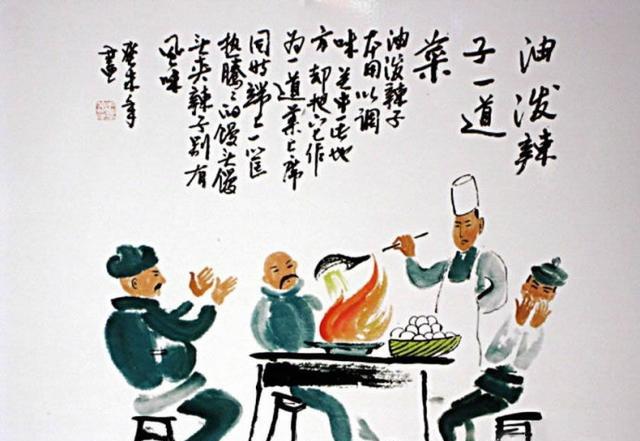 油泼辣
子一道
菜
油泼辣子
本用以调
味 关中一些地
方 却把它作
为一道菜上席
同时端上一筐
热腾々的馒头馒
头夹辣子别有
风味
癸未年